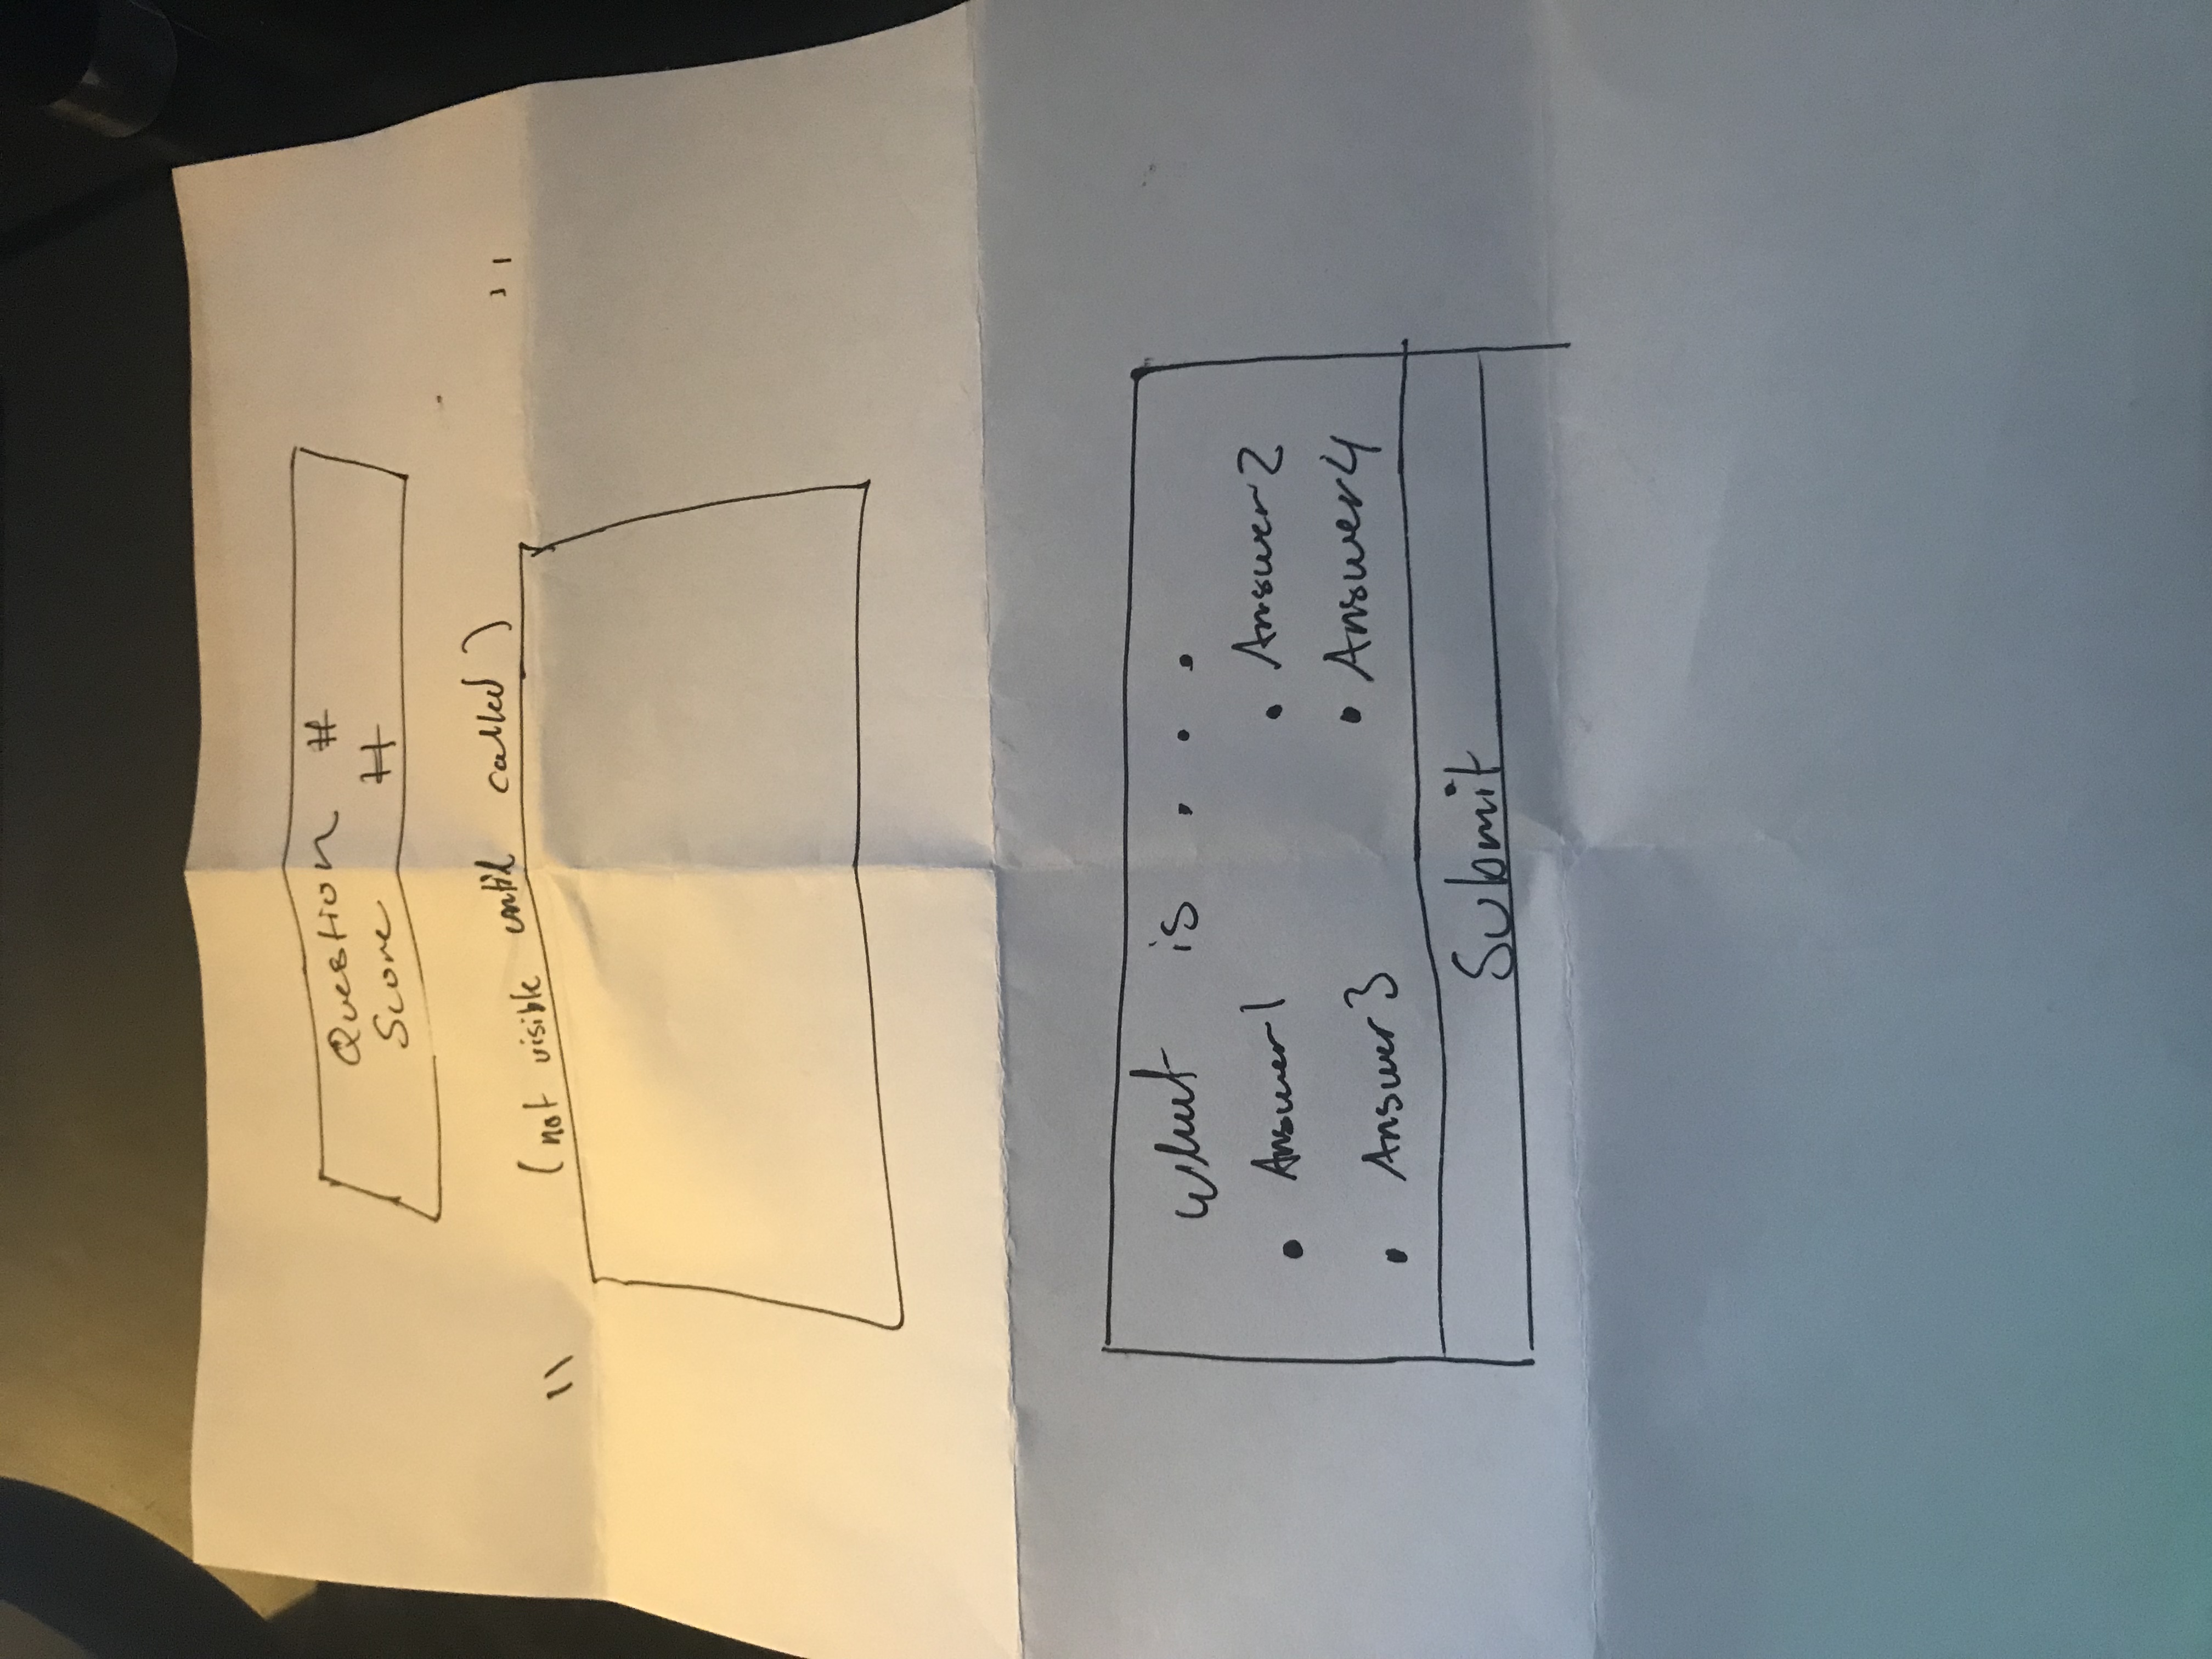 Question #
Score #
(not visible until called)
What is . . .
• Answer1 • Answer2
• Answer3 • Answer4
Submit